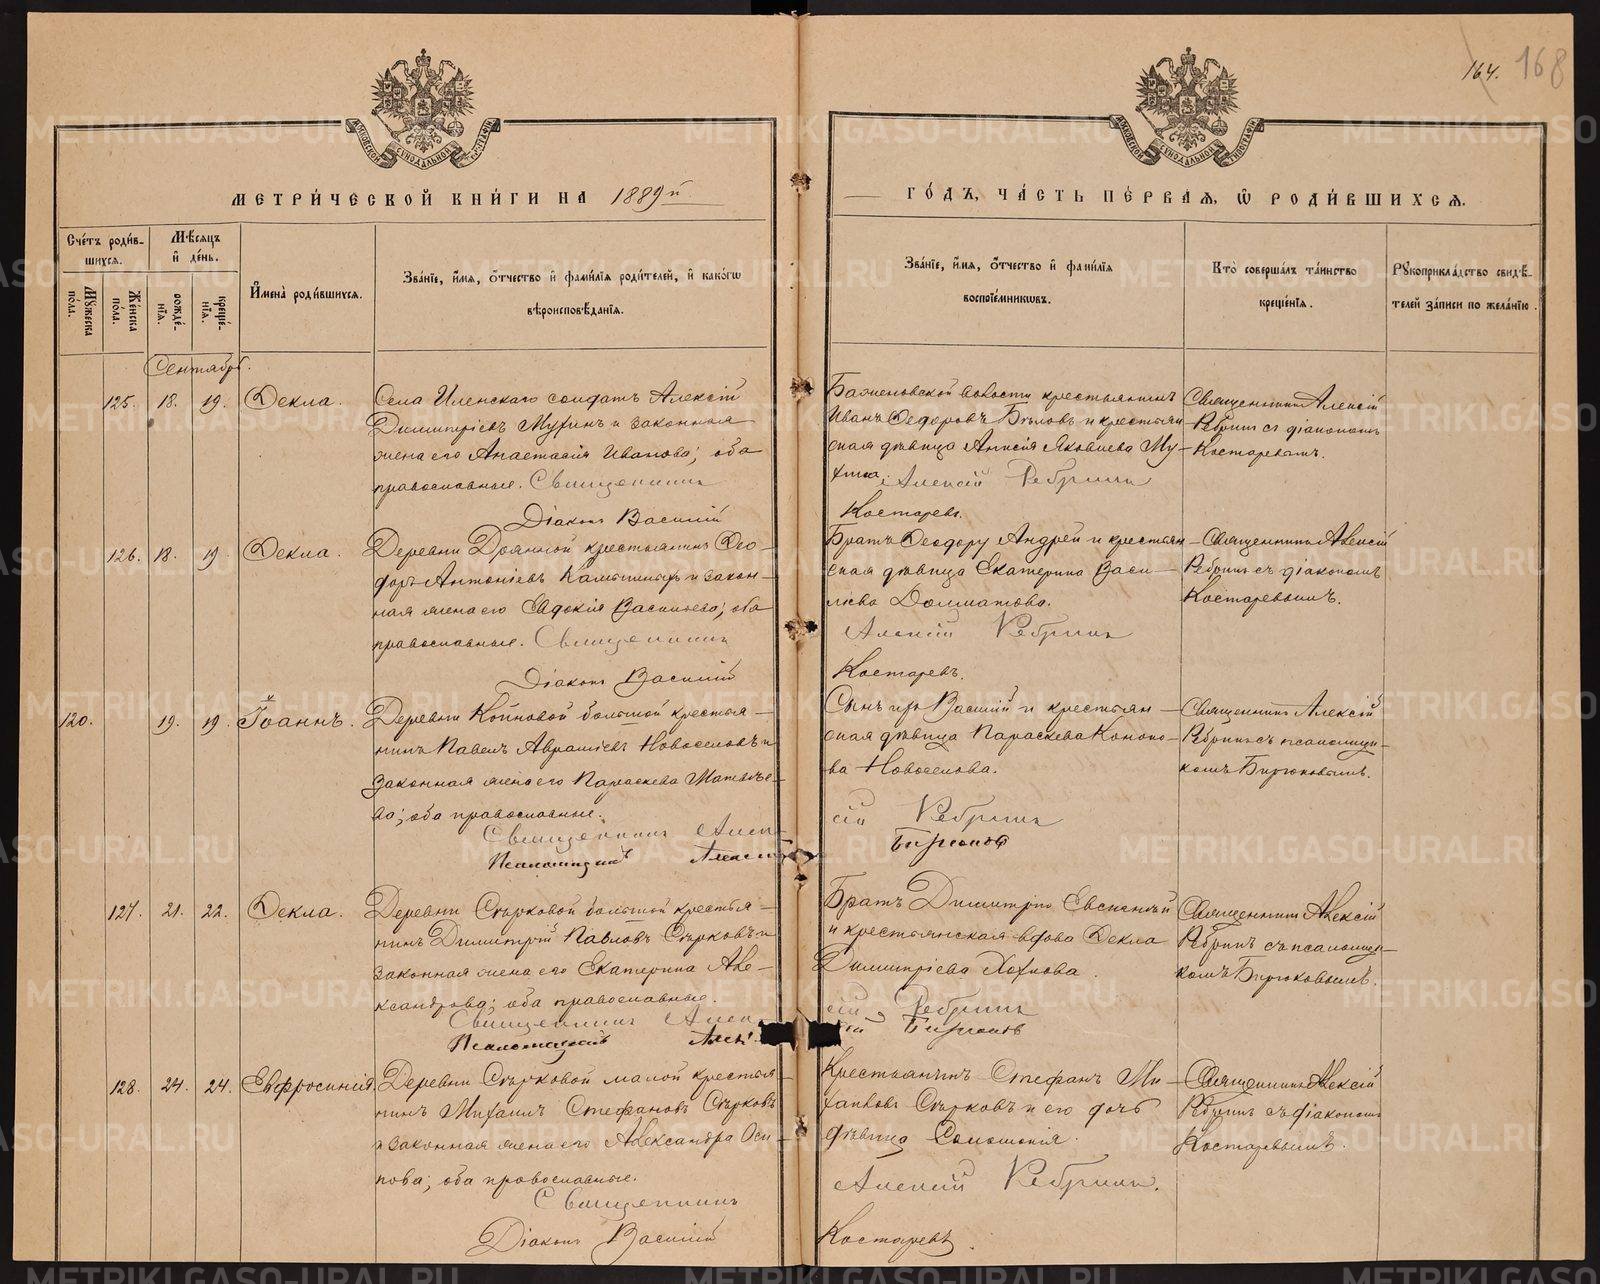 164. 168
МОСКОВСКОЙ СѴНОДАЛЬНОЙ ТИПОГРАФІИ
МОСКОВСКОЙ СѴНОДАЛЬНОЙ ТИПОГРАФІИ
МЕТРИ́ЧЕСКОЙ КНИ́ГИ НА 1889й
ГО́ДЪ, ЧА́СТЬ ПЕ́РВАѦ, Ѡ РОДИ́ВШИХСѦ.
Сче́тъ роди́в-
шихсѧ.
Мꙋ́жеска по́ла.
Же́нска по́ла.
Мѣ́сѧцъ
и҆ де́нь.
рожде́-
нїѧ.
креще́-
нїѧ.
И҆мена̀ роди́вшихсѧ.
Зва́нїе, и҆́мѧ, ѻ҆́тчество и҆ фами́лїѧ роди́телей, и҆ како́гѡ
вѣроисповѣ́данїѧ.
Зва́нїе, и҆́мѧ, ѻ҆́тчество и҆ фами́лїѧ
воспрїе́мникѡвъ.
Кто̀ соверша́лъ та́инство
креще́нїѧ.
Рꙋкоприкла́дство свидѣ́-
телей за́писи по жела́нїю.
Сентябрь.
125. 18. 19. Ѳекла.
Села Иленскаго солдатъ Алексій
Димитріевъ Мухинъ и законная
жена его Анастасія Иванова; оба
православные. Священникъ
Діаконъ Василій
Баженовской волости крестьянинъ
Иванъ Ѳедоровъ Бѣловъ и крестьян-
ская дѣвица Анисія Яковлева Му-
хина. Алексій Ребринъ
Костаревъ.
Священникъ Алексій
Ребринъ съ діакономъ
Костаревымъ.
126. 18. 19. Ѳекла.
Деревни Дрянной крестьянинъ Ѳео-
доръ Антоніевъ и закон-
ная жена его Евдокія Васильева; оба
православные. Священникъ
Діаконъ Василій
Братъ Ѳеодору Андрей и крестьян-
ская дѣвица Екатерина Васи-
лева Долматова.
Алексій Ребринъ
Костаревъ.
Священникъ Алексій
Ребринъ съ діакономъ
Костаревымъ.
120. 19. 19. Іоаннъ.
Деревни Койновой большой крестья-
нинъ Павелъ Авраміевъ Новоселовъ и
законная жена его Параскева Матвѣе-
ва; оба православные.
Священникъ Алек-
Псаломщикъ Алексѣй
Сынъ его Василій и крестьян-
ская дѣвица Параскева Кононо-
ва Новоселова.
сій Ребринъ
Бирюковъ
Священникъ Алексій
Ребринъ съ псаломщи-
комъ Бирюковымъ.
127. 21. 22. Ѳекла.
Деревни Сѣрковой большой крестья-
нинъ Димитрій Павловъ Сѣрковъ и
законная жена его Екатерина Але-
ксандрова; оба православные.
Священникъ Алек-
Псаломщикъ Алек
Братъ Димитрію Евсигній
и крестьянская вдова Ѳекла
Димитріева Хохлова.
сій Ребринъ
сѣй Бирюковъ
Священникъ Алексій
Ребринъ съ псаломщи-
комъ Бирюковымъ.
128. 24. 24. Евфросинія.
Деревни Сѣрковой малой крестья-
нинъ Михаилъ Стефановъ Сѣрковъ
и законная жена его Александра Оси-
пова; оба православные.
Священникъ
Діаконъ Василій
Крестьянинъ Стефанъ Ми-
хаиловъ Сѣрковъ и его дочь
дѣвица Соломонія.
Алексій Ребринъ.
Костаревъ.
Священникъ Алексій
Ребринъ съ діакономъ
Костаревымъ.
METRIKI.GASO-URAL.RU